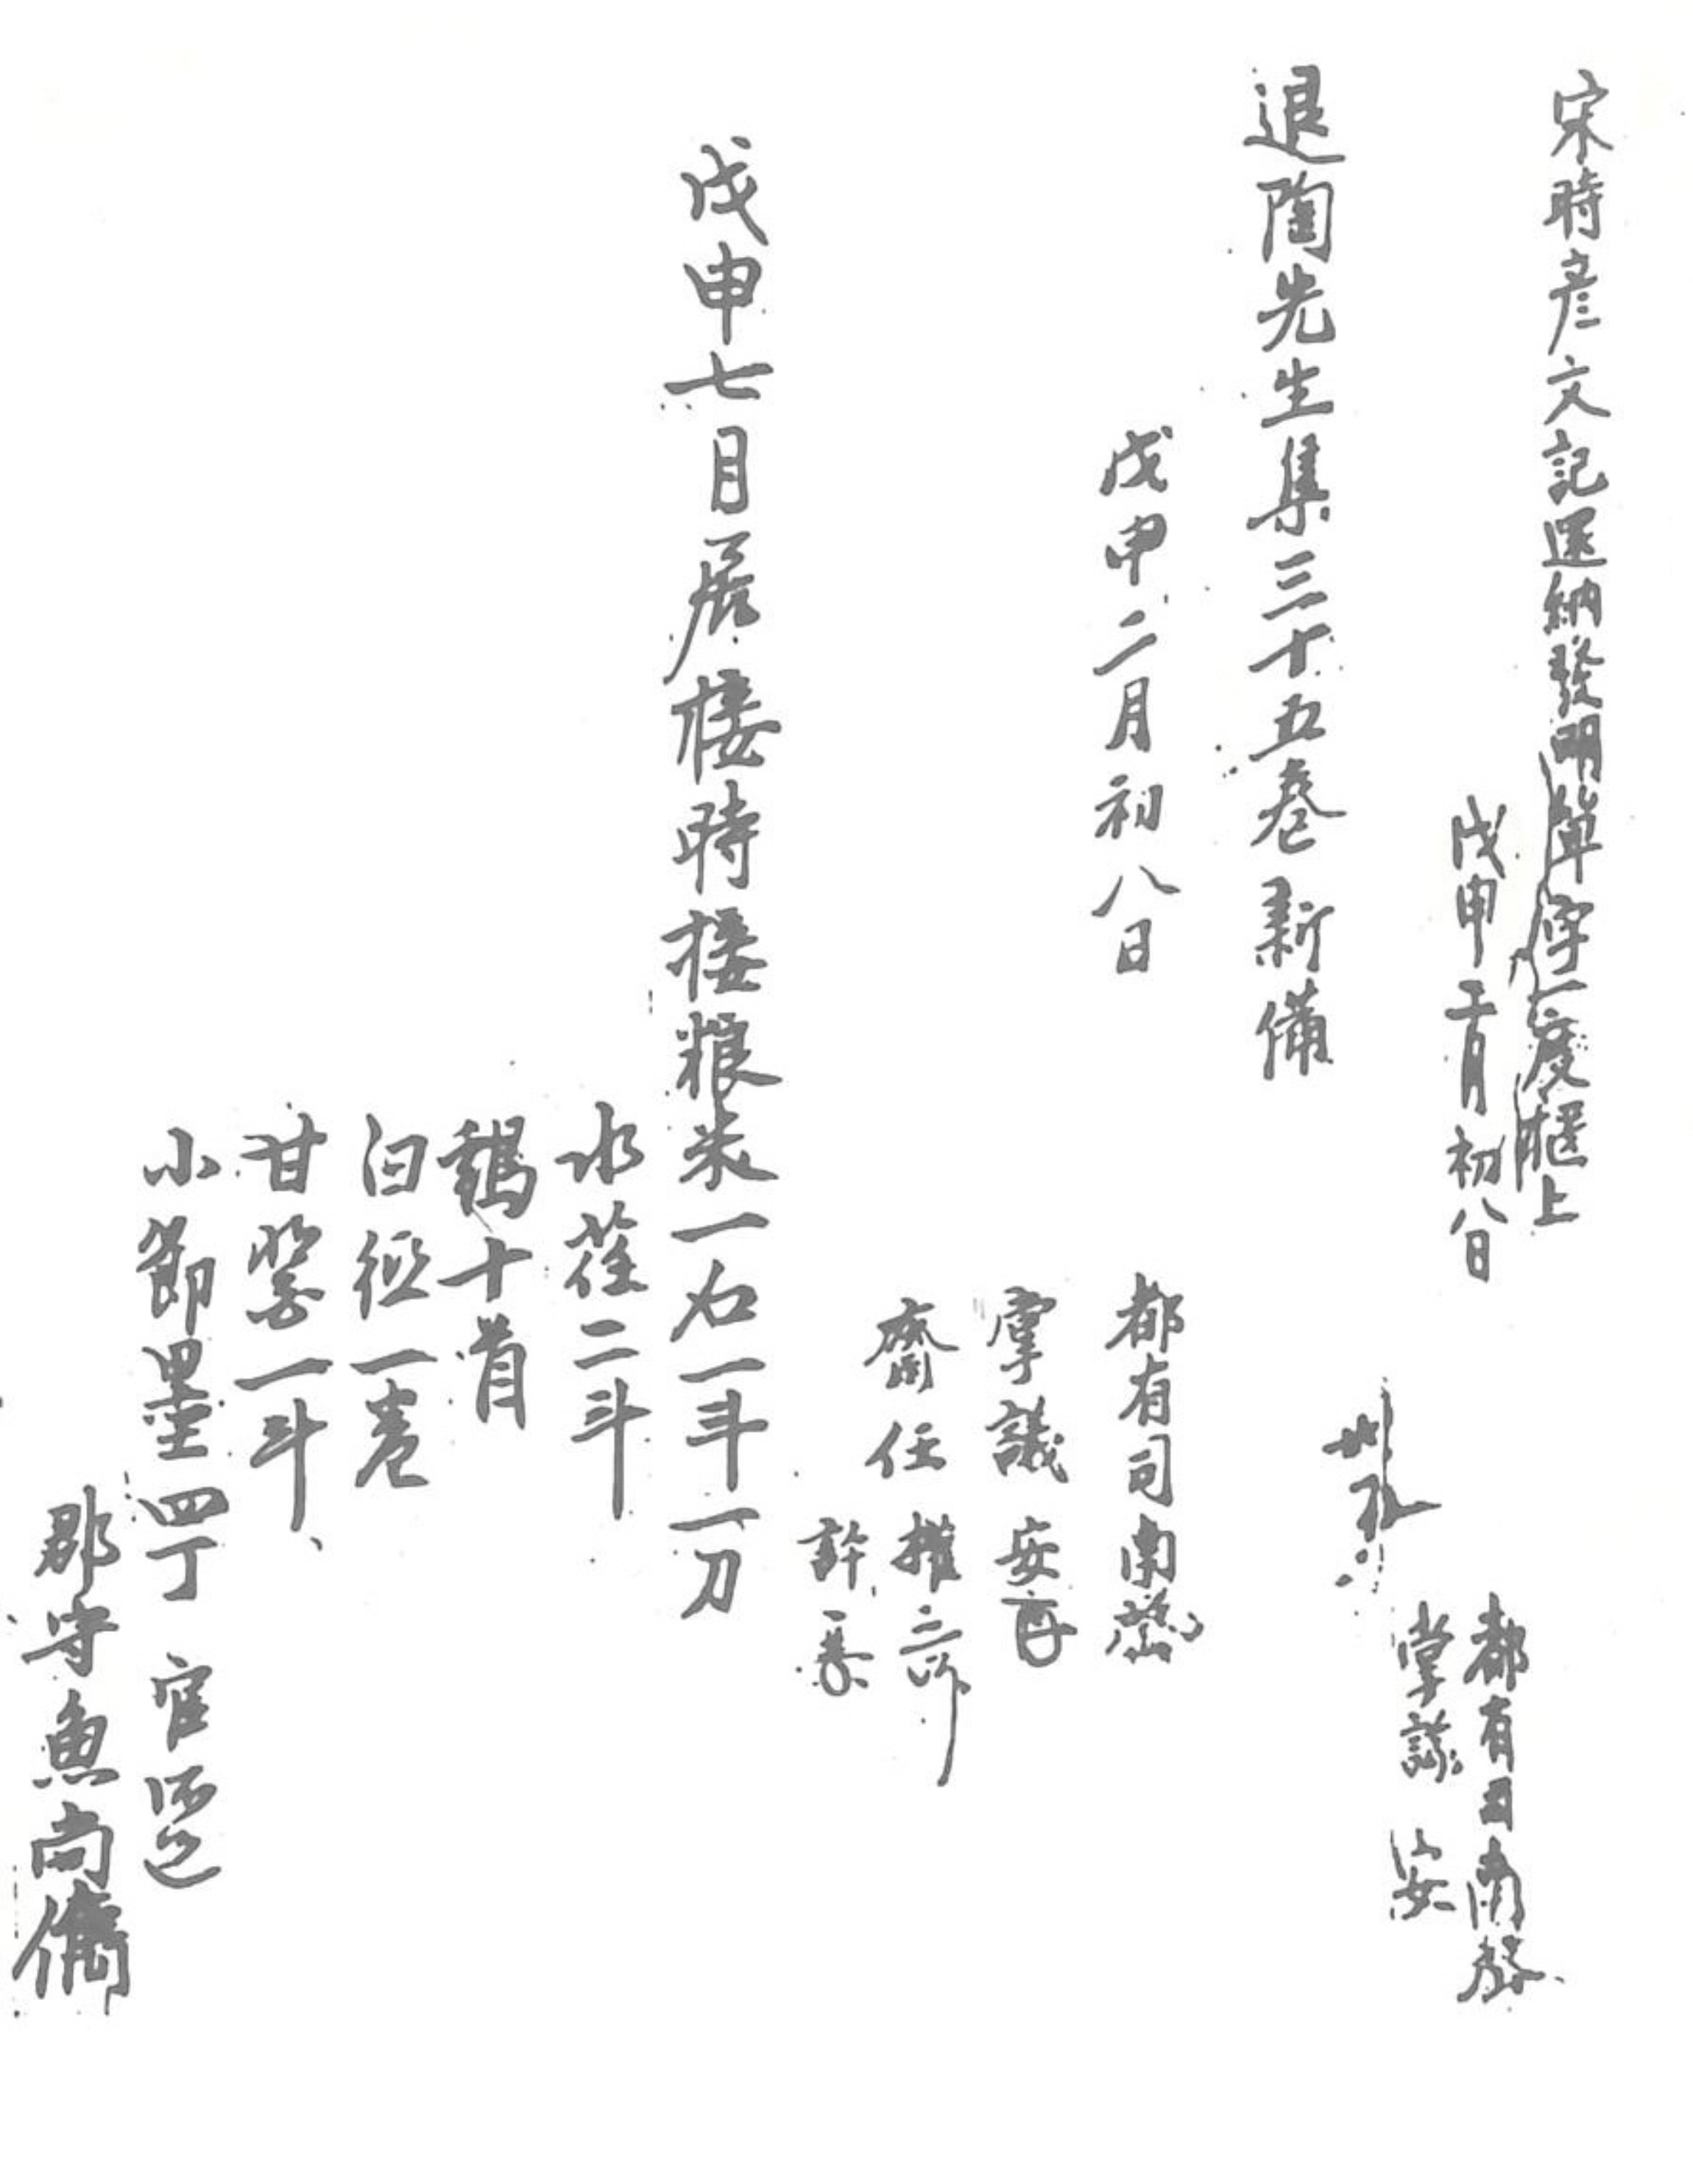 宋時彦文記還納發明單字一度樻上
戊申正月初八日
都有司南
掌議 安
退陶先生集三十五卷新備
戊申二月初八日
都有司南
掌議 安
齋任 權
許
戊申七月居接時接粮米一石一斗一刀
水荏二斗
鷄十首
白紙一卷
甘醬一斗
小節墨四丁 官送
郡守魚尚僑